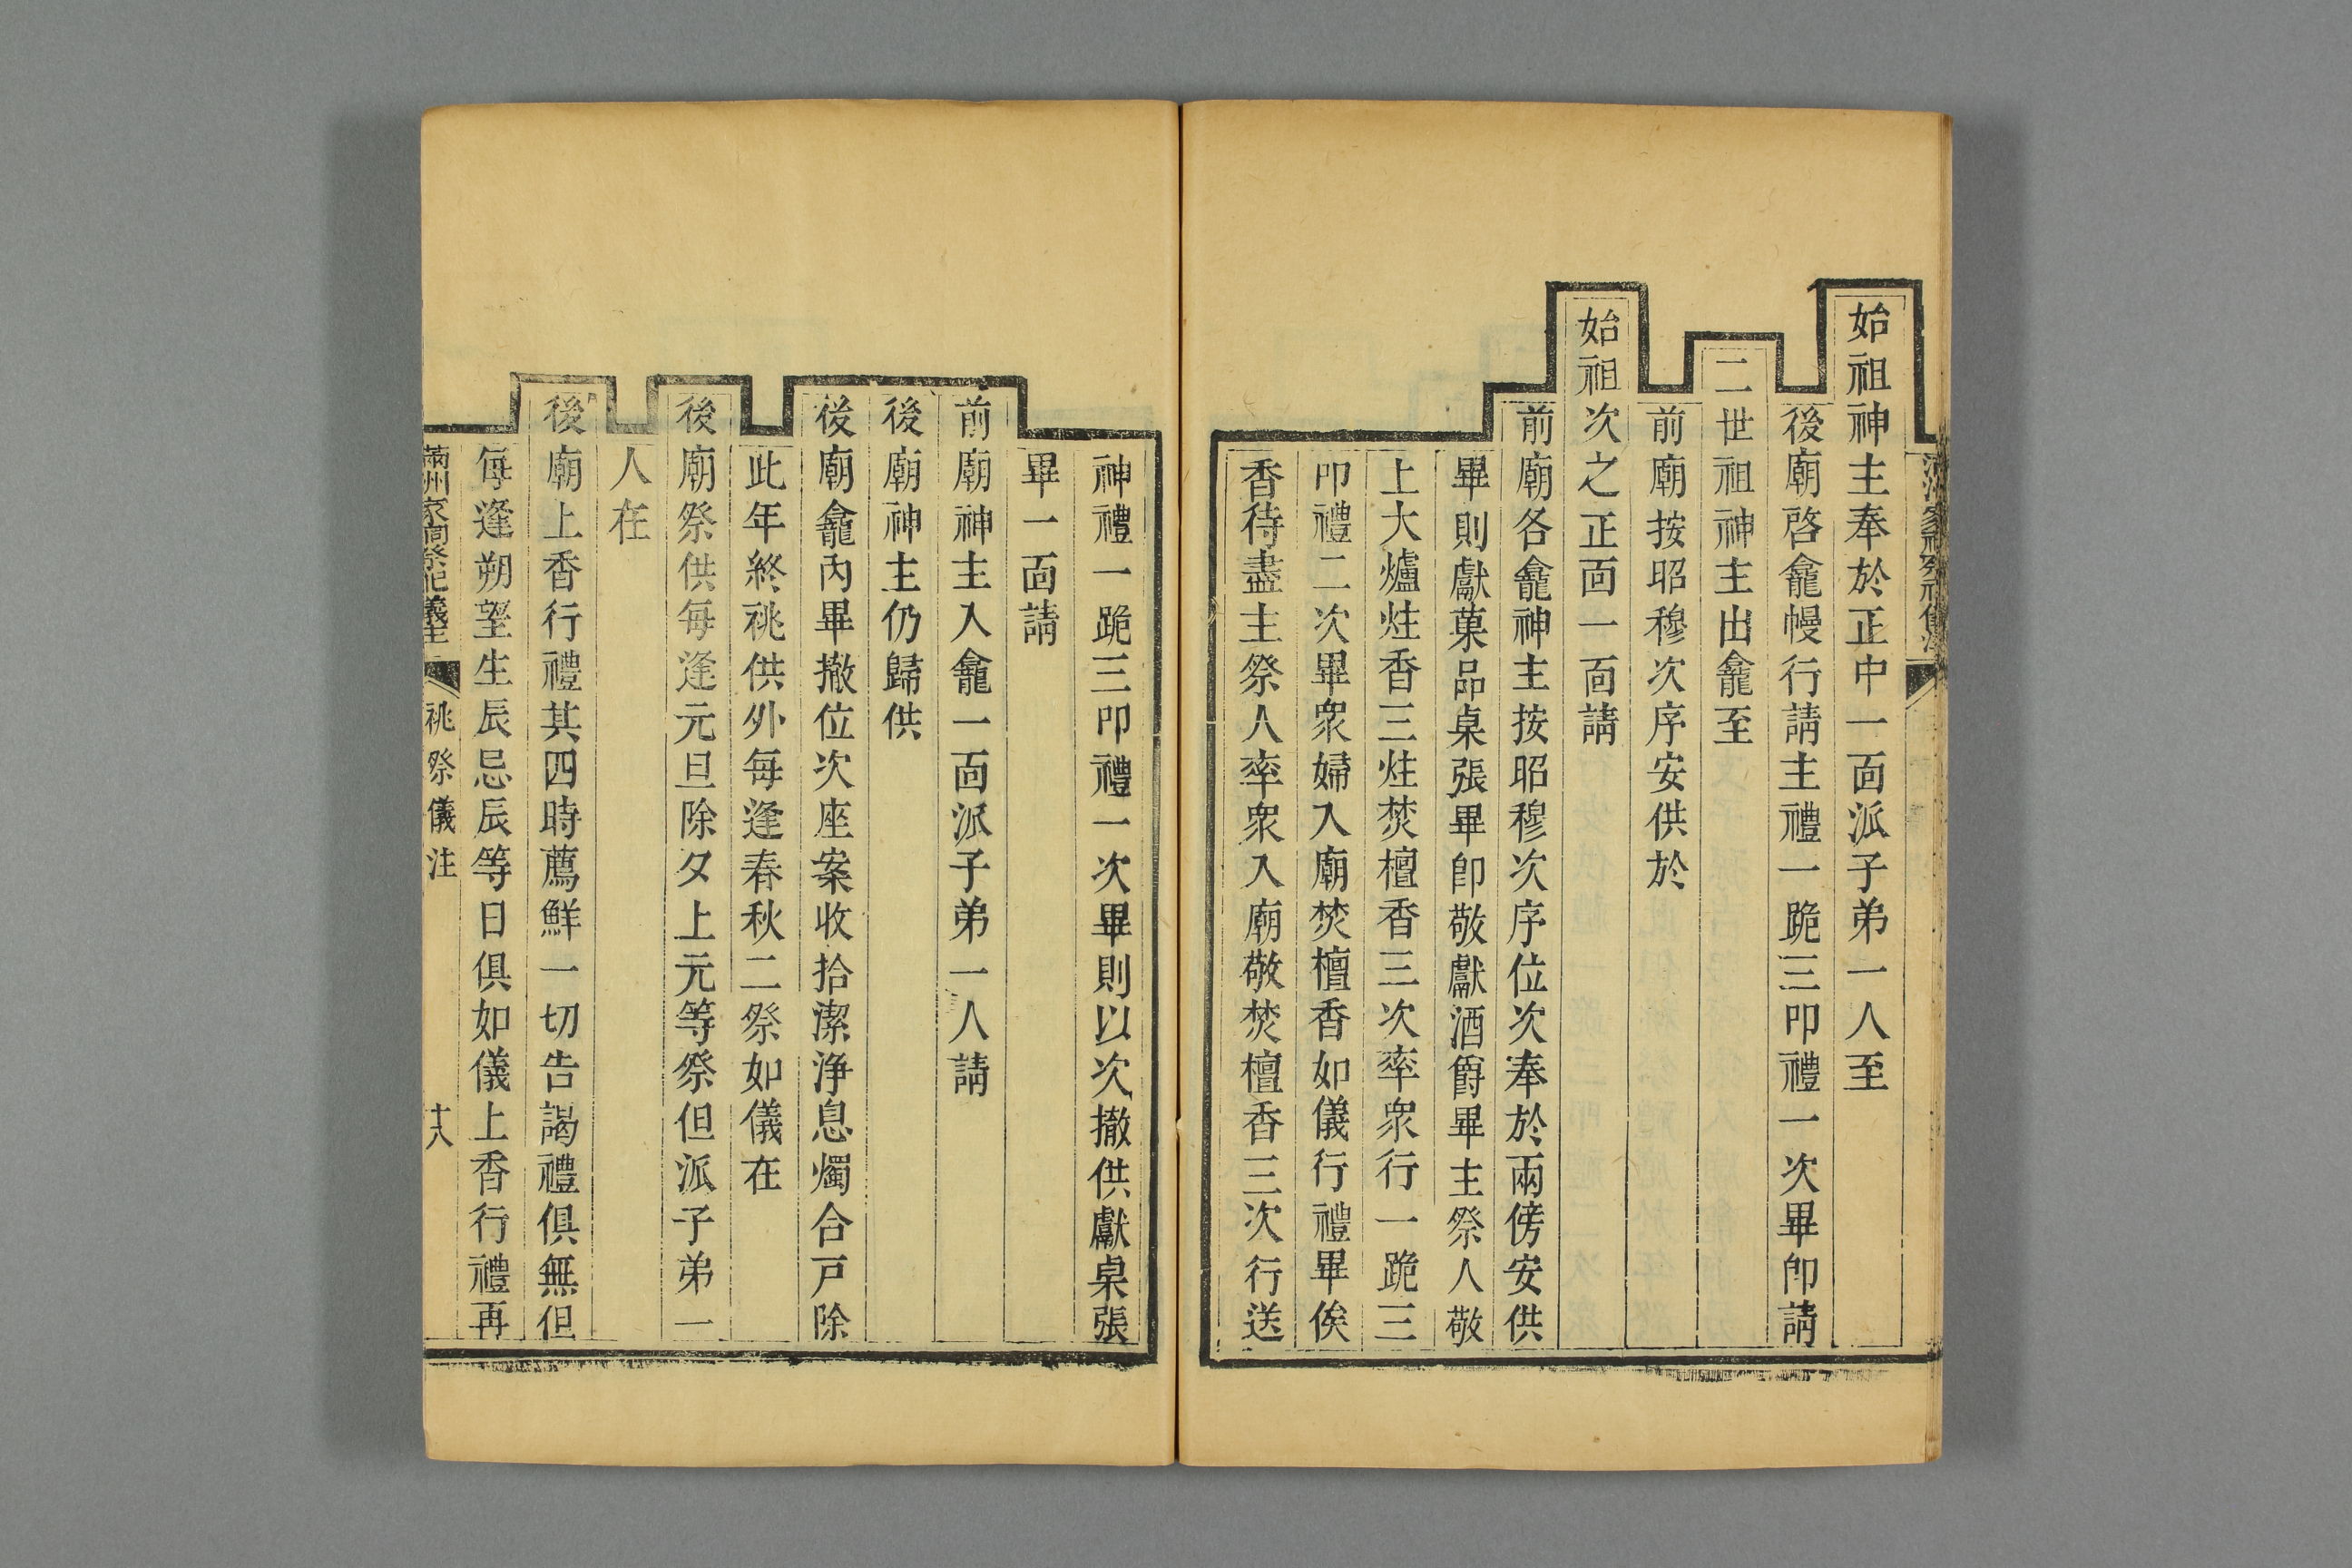 始祖神主奉於正中一面派子弟一人至
後廟啓龕幔行請主禮一跪三叩禮一次畢卽請
二世祖神主出龕至
前廟按昭穆次序安供於
始祖次之正面一面請
前廟各龕神主按昭穆次序位次奉於兩傍安供
畢則獻菓品桌張畢卽敬獻酒爵畢主祭人敬
上大爐炷香三炷焚檀香三次率衆行一跪三
叩禮二次畢衆婦入廟焚檀香如儀行禮畢俟
香待盡主祭人率衆入廟敬焚檀香三次行送
神禮一跪三叩禮一次畢則以次撤供獻桌張
畢一面請
前廟神主入龕一面派子弟一人請
後廟神主仍歸供
後廟龕內畢撤位次座案收拾潔浄息燭合戸除
此年終祧供外每逢春秋二祭如儀在
後廟祭供每逢元旦除夕上元等祭但派子弟一
人在
後廟上香行禮其四時薦鮮一切告謁禮俱無但
每逢朔望生辰忌辰等日俱如儀上香行禮再
滿洲家祠祭祀儀注 祧祭儀注 十八